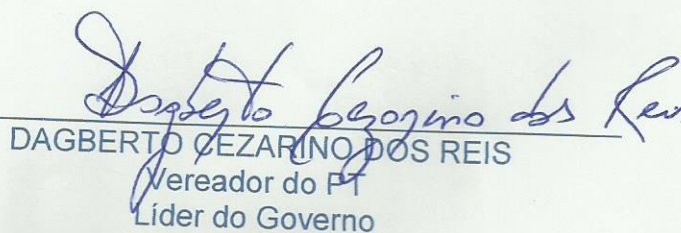 Dagberto Cezarino dos Reis
DAGBERTO CEZARINO DOS REIS
Vereador do PT
Líder do Governo